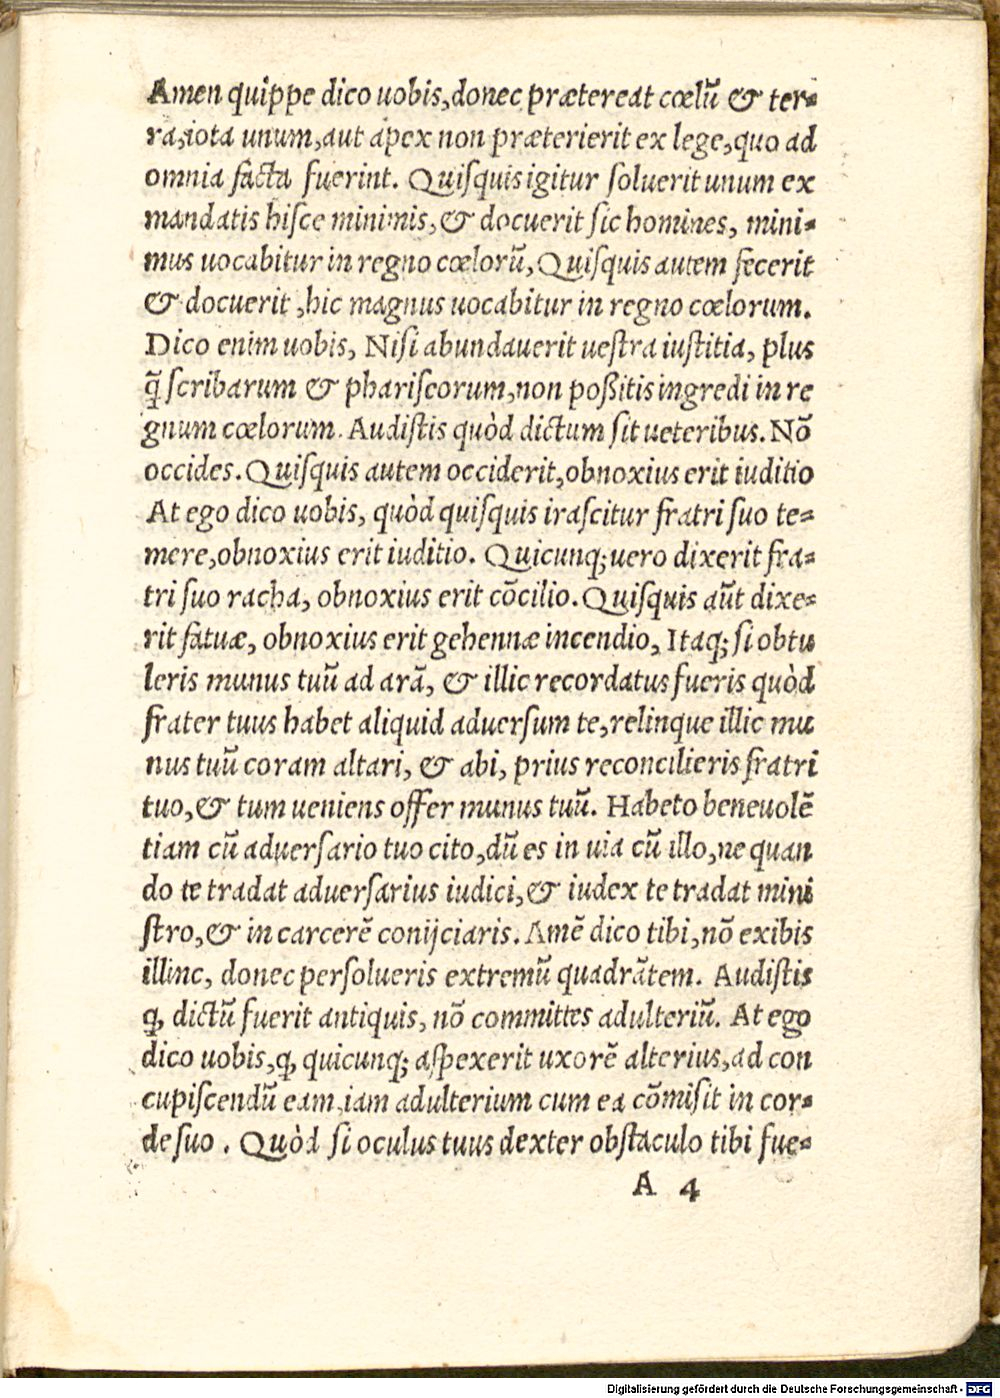 Amen quippe dico uobis, donec prætereat cœlũ & ter=
ra, iota unum, aut apex non præterierit ex lege, quo ad
omnia facta fuerint. Quiſquis igitur ſoluerit unum ex
mandatis hiſce minimis, & docuerit ſic homines, mini=
mus uocabitur in regno cœlorũ, Quiſquis autem fecerit
& docuerit , hic magnus uocabitur in regno cœlorum.
Dico enim uobis, Niſi abundauerit ueſtra iuſtitia, plus
q̃ ſcribarum & phariſeorum, non poßitis ingredi in re
gnum cœlorum. Audiſtis quòd dictum ſit ueteribus. Nõ
occides. Quiſquis autem occiderit, obnoxius erit iuditio
At ego dico uobis, quòd quiſquis iraſcitur fratri ſuo te=
mere, obnoxius erit iuditio. Quicunq; uero dixerit fra=
tri ſuo racha, obnoxius erit cõcilio. Quiſquis aũt dixe=
rit fatuæ, obnoxius erit gehennæ incendio, Itaq; ſi obtu
leris munus tuũ ad arã, & illic recordatus fueris quòd
frater tuus habet aliquid aduerſum te, relinque illic mu
nus tuũ coram altari, & abi, prius reconcilieris fratri
tuo, & tum ueniens offer munus tuũ. Habeto beneuolẽ
tiam cũ aduerſario tuo cito, dũ es in uia cũ illo, ne quan
do te tradat aduerſarius iudici, & iudex te tradat mini
ſtro, & in carcerẽ conijciaris. Amẽ dico tibi, nõ exibis
illinc, donec perſolueris extremũ quadrãtem. Audiſtis
ꝙ dictũ fuerit antiquis, nõ committes adulteriũ. At ego
dico uobis, ꝙ quicunq; aſpexerit uxorẽ alterius, ad con
cupiſcendũ eam, iam adulterium cum ea cõmiſit in cor=
de ſuo . Quòd ſi oculus tuus dexter obſtaculo tibi fue=
A 4
Digitalisierung gefördert durch die Deutsche Forschungsgemeinschaft - DFG